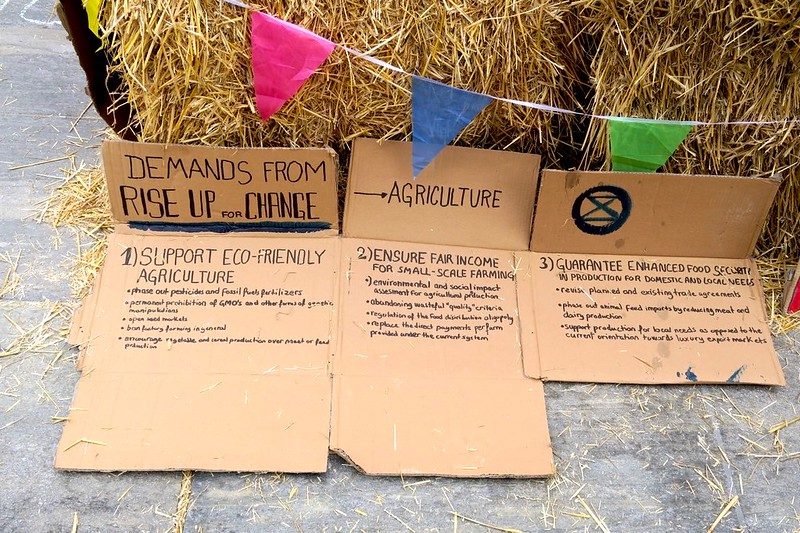 DEMANDS FROM
RISE UP FOR CHANGE
→AGRICULTURE
1) SUPPORT ECO-FRIENDLY
AGRICULTURE
• phase out pesticides and fossil fuels fertilizers
• permanent prohibition of GMO's and other forms of genetic
manipulations
• open seed markets
• ban factory farming in general
• encourage vegetable and cereal production over meat or feed
production
2) ENSURE FAIR INCOME
FOR SMALL-SCALE FARMING
• environmental and social impact
assessment for agricultural production
• abandoning wasteful "quality" criteria
• regulation of the food distribution oligopoly
• replace the direct payments per farm
provided under the current system
3) GUARANTEE ENHANCED FOOD SECURITY
IN PRODUCTION FOR DOMESTIC AND LOCAL NEEDS
• revise planned and existing trade agreements
• phase out animal food imports by reducing meat and
dairy production
• support production for local needs as opposed to the
current orientation towards luxury export markets